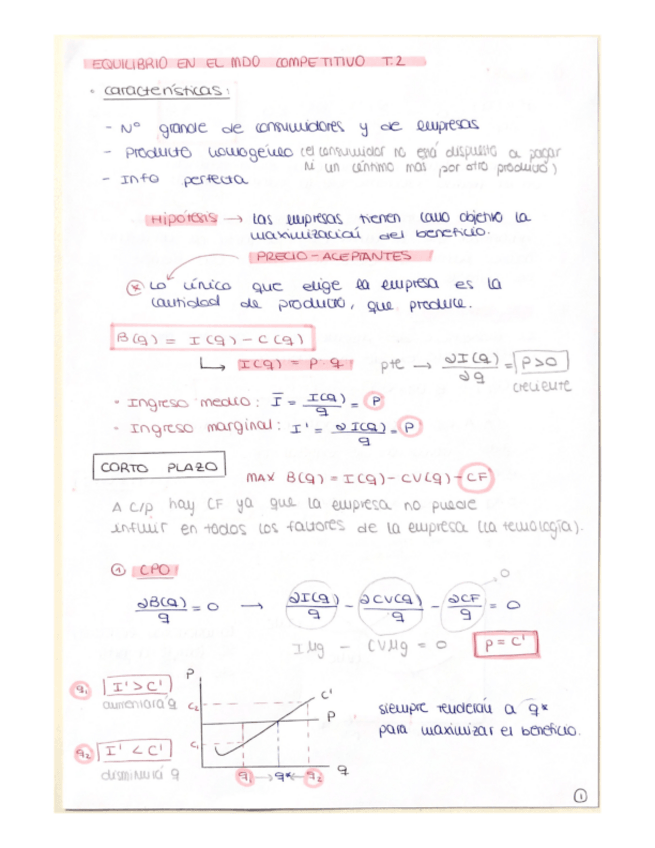 EQUILIBRIO EN EL MDO COMPETITIVO T.2
· características:
- Nº grande de consumidores y de empresas
- Producto homogéneo (el consumidor no está dispuesto a pagar
ni un céntimo más por otro producto)
- Info perfecta
Hipótesis → las empresas tienen como objetivo la
maximización del beneficio.
PRECIO-ACEPTANTES
* Lo único que elige la empresa es la
cantidad de producto, que produce.
B(q) = I(q) - C(q)
↳ I(q) = P·q pte → ∂I(q)/∂q = P>0
creciente
· Ingreso medio: Ī = I(q)/q = P
· Ingreso marginal: I' = ∂I(q)/q = P
CORTO PLAZO MAX B(q) = I(q) - CV(q) - CF
A C/P hay CF ya que la empresa no puede
influir en todos los factores de la empresa (la tecnología).
① CPO
0
∂B(q)/q = 0 → ∂I(q)/q - ∂CV(q)/q - ∂CF/q = 0
IMg - CVMg = 0 P = C'
q₁ I' > C'
aumentará q
q₂ I' < C'
disminuirá q
P
C'
C₂
P
C₁
q₁ → q* ← q₂ q
siempre tenderán a q*
para maximizar el beneficio.
①